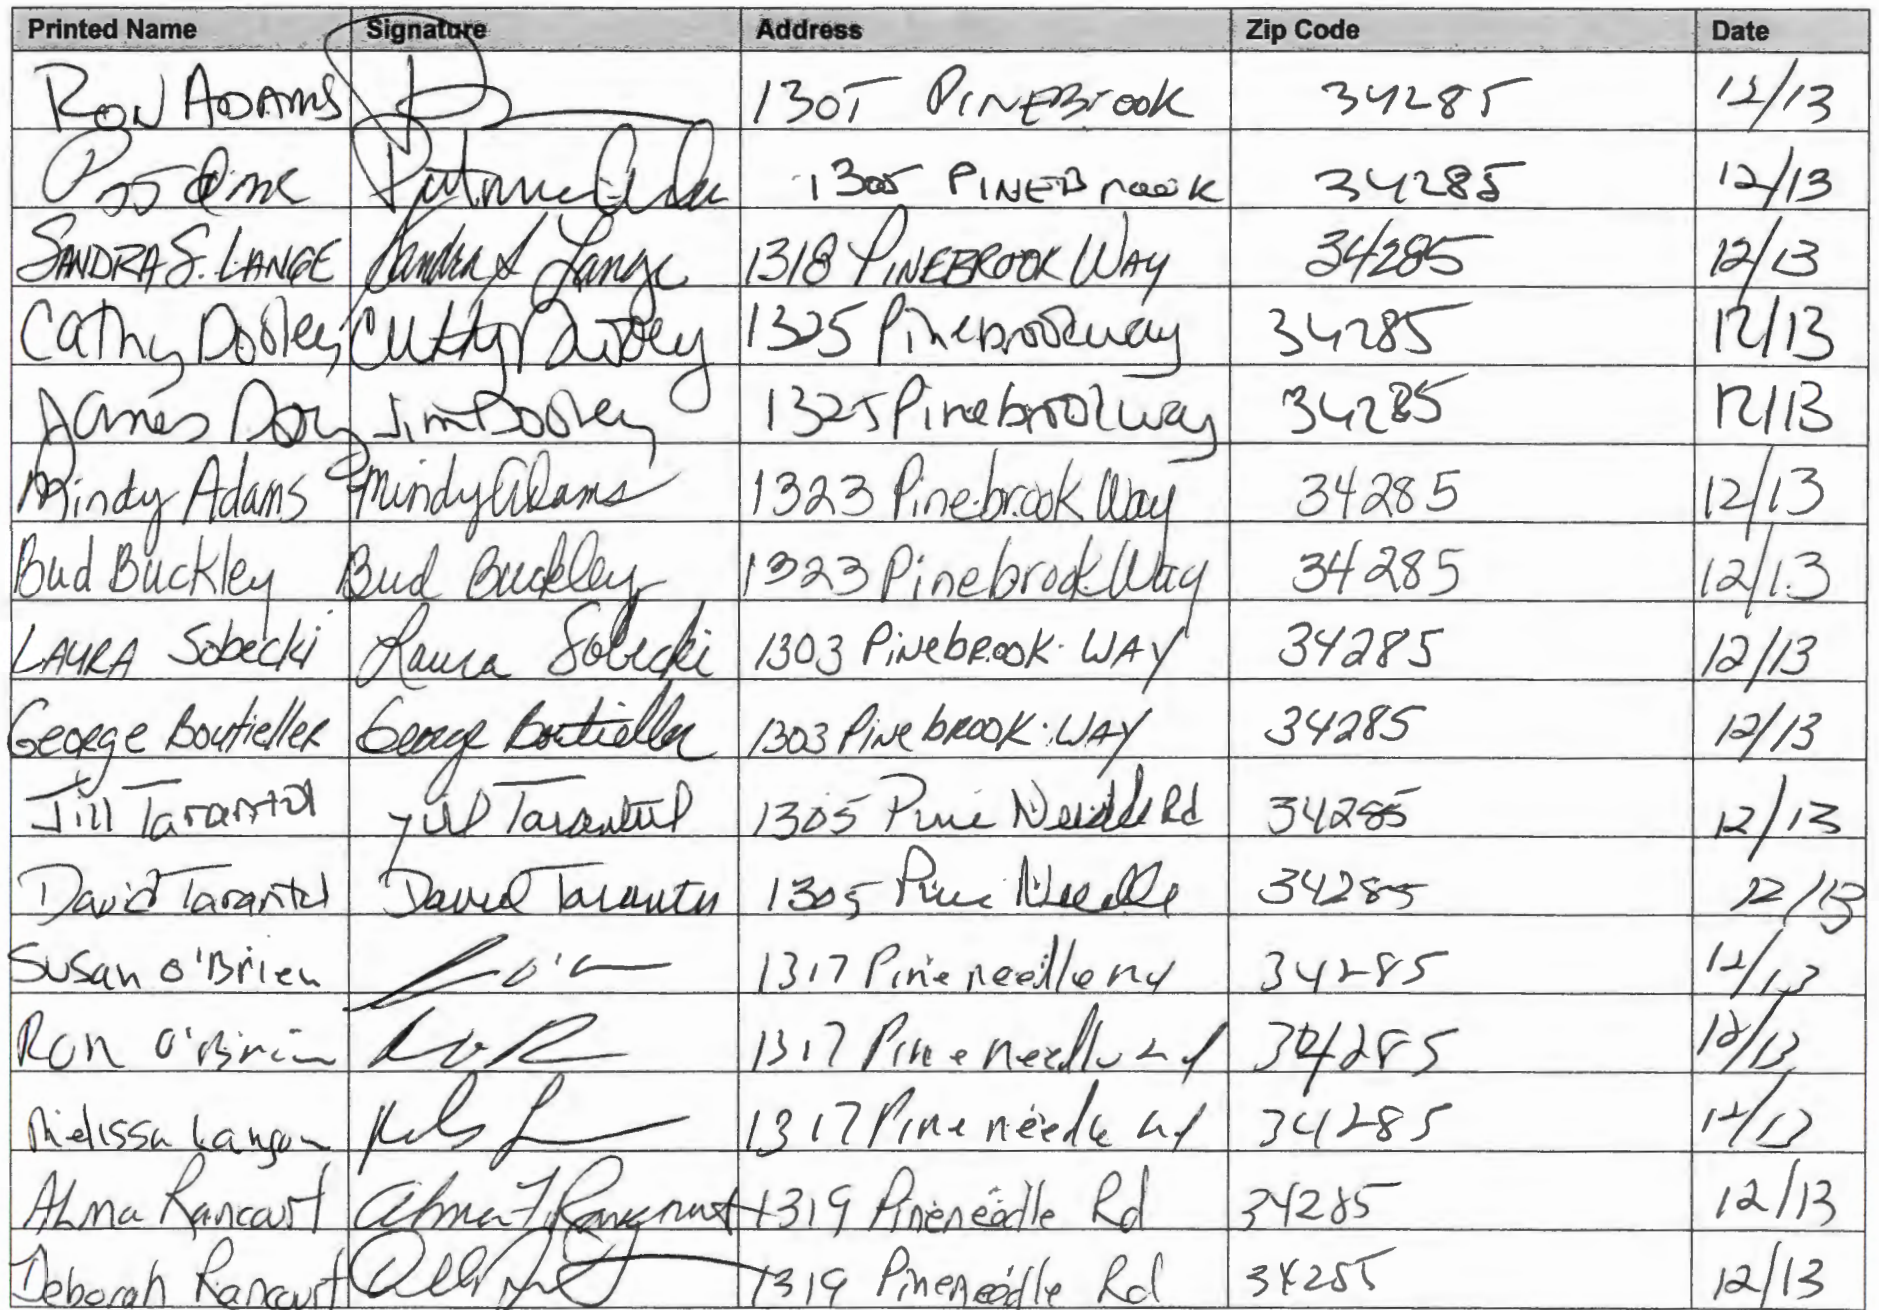 Printed Name Signature Address Zip Code Date
RON ADAMS 1305 PINEBrook 34285 12/13
1305 PINEBrook 34285 12/13
SANDRA S. LANGE Sandra S Lange 1318 PINEBROOK WAY 34285 12/13
Cathy Dooley Cathy Dooley 1325 Pinebrookway 34285 12/13
James Jim Dooley 1325 Pinebrookway 34285 12/13
Mindy Adams Mindy Adams 1323 Pinebrook Way 34285 12/13
Bud Buckley Bud Buckley 1323 Pinebrook Way 34285 12/13
LAURA Sobecki Laura Sobecki 1303 Pinebrook WAY 34285 12/13
George Boutieller George Boutieller 1303 Pinebrook WAY 34285 12/13
Jill Tarantul Jill Tarantul 1305 Pine Needle Rd 34285 12/13
David Tarantul David Tarantul 1305 Pine Needle 34285 12/13
Susan O'Brien 1317 Pineneedle rd 34285 12/13
Ron O'Brien 1317 Pineneedle rd 34285 12/13
Melissa 1317 Pineneedle rd 34285 12/13
Alma Rancourt Alma Rancourt 1319 Pineneedle Rd 34285 12/13
Deborah Rancourt 1319 Pineneedle Rd 34285 12/13